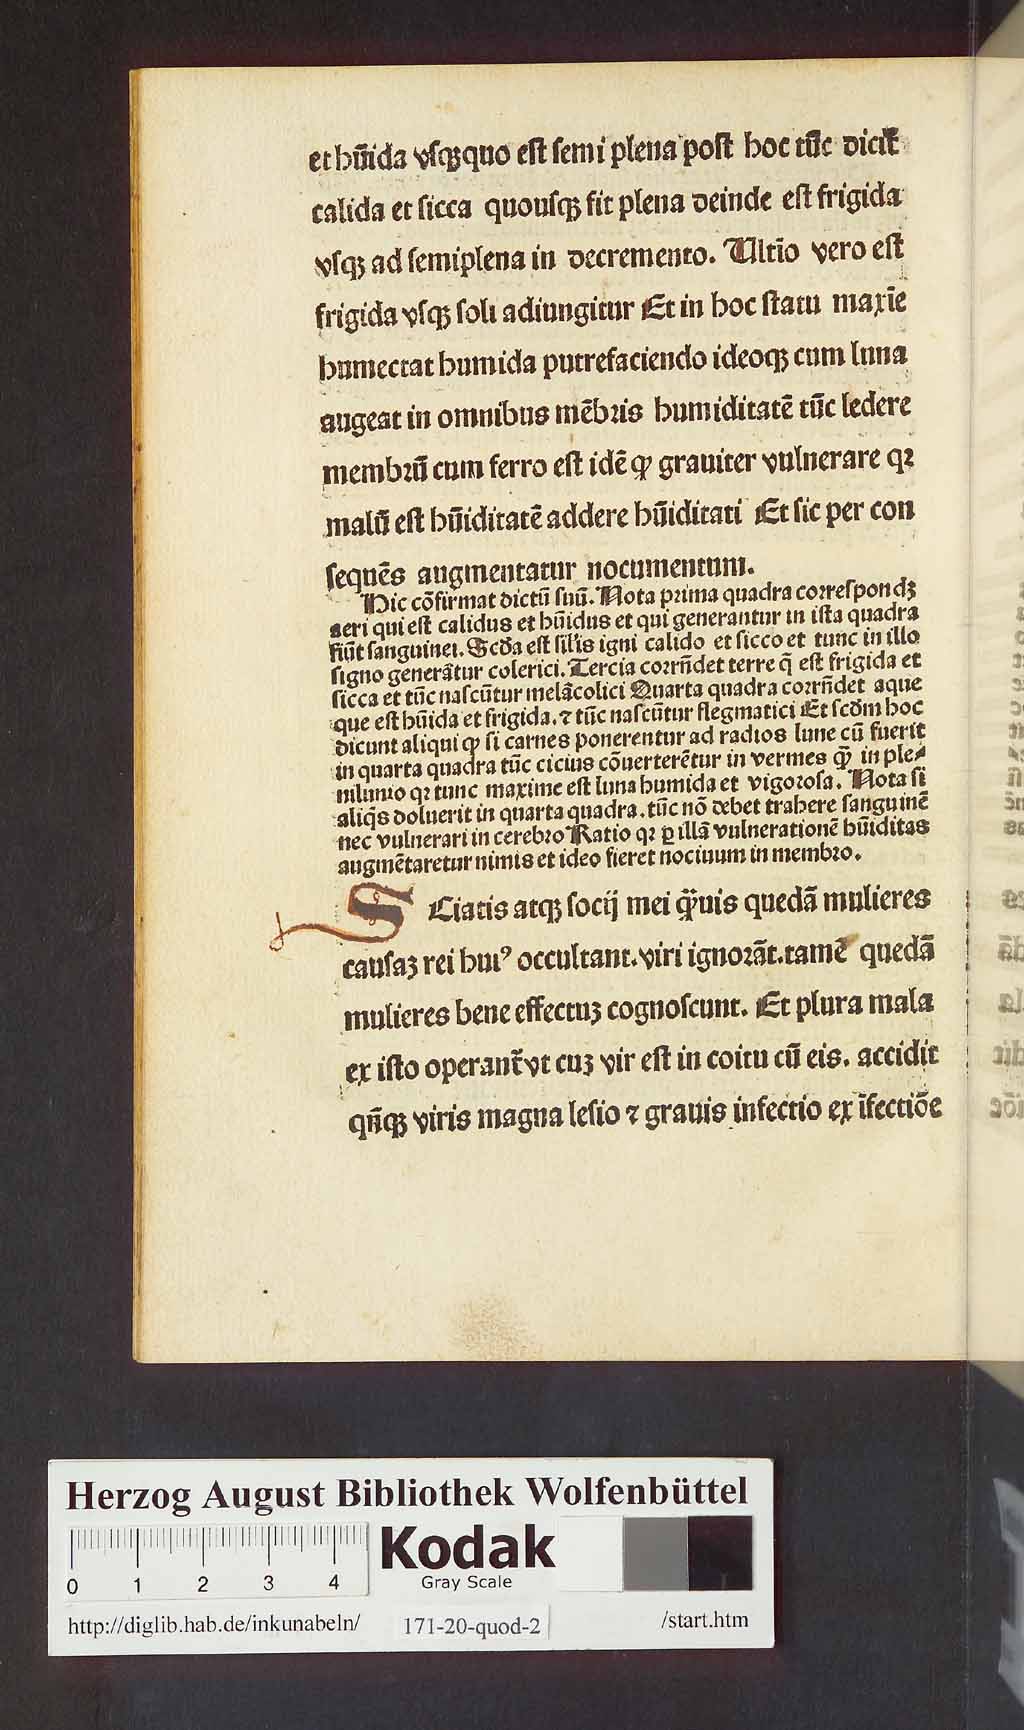 et hūida vſqꝫquo eſt ſemi plena poſt hoc tūc dicit̄
calida et ſicca quouſqꝫ fit plena deinde eſt frigida
vſqꝫ ad ſemiplena in decremento. Ultīo vero eſt
frigida vſqꝫ ſoli adiungitur Et in hoc ſtatu maxīe
humectat humida putrefaciendo ideoqꝫ cum luna
augeat in omnibus mēbꝛis humiditatē tūc ledere
membꝛū cum ferro eſt idē ꝙ grauiter vulnerare qꝛ
malū eſt hūiditatē addere hūiditati Et ſic per con
ſequēs augmentatur nocumentum.
Hic cōfirmat dictū ſuū. Nota pꝛima quadra coꝛreſpondꝫ
aeri qui eſt calidus et hūidus et qui generantur in iſta quadra
fiūt ſanguinei. Scd̄a eſt ſil'is igni calido et ſicco et tunc in illo
ſigno generātur colerici. Tercia coꝛrn̄det terre q̄ eſt frigida et
ſicca et tūc naſcūtur melācolici Quarta quadra coꝛrn̄det aque
que eſt hūida et frigida. ⁊ tūc naſcūtur flegmatici Et ſcd̄m hoc
dicunt aliqui ꝙ ſi carnes ponerentur ad radios lune cū fuerit
in quarta quadra tūc cicius cōuerterētur in vermes ꝙ̄ in ple⸗
nilunio qꝛ tunc maxime eſt luna humida et vigoꝛoſa. Nota ſi
aliq̇s doluerit in quarta quadra. tūc nō debet trahere ſanguinē
nec vulnerari in cerebꝛo Ratio qꝛ ꝑ illā vulnerationē hūiditas
augmētaretur nimis et ideo fieret nociuum in membꝛo.
SCiatis atqꝫ ſocij mei ꝙ̄uis quedā mulieres
cauſaꝫ rei huiꝰ occultant. viri ignoꝛāt. tamē quedā
mulieres bene effectuꝫ cognoſcunt. Et plura mala
ex iſto operant̄ vt cuꝫ vir eſt in coitu cū eis. accidit
qn̄qꝫ viris magna leſio ⁊ grauis infectio ex īfectiōe
Herzog August Bibliothek Wolfenbüttel
0 1 2 3 4
Kodak
Gray Scale
http://diglib.hab.de/inkunabeln/ 171-20-quod-2 /start.htm